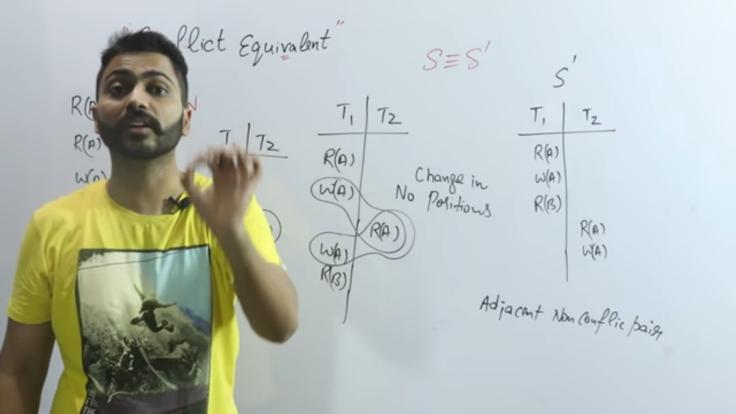 Equivalent"
S≡S'
S'
R(A)
W(A)
T₂
T₁ T₂
R(A)
W(A)
R(A)
W(A)
R(B)
Change in
No Positions
T₁ T₂
R(A)
W(A)
R(B)
R(A)
W(A)
Adjacent Nonconflic pairs